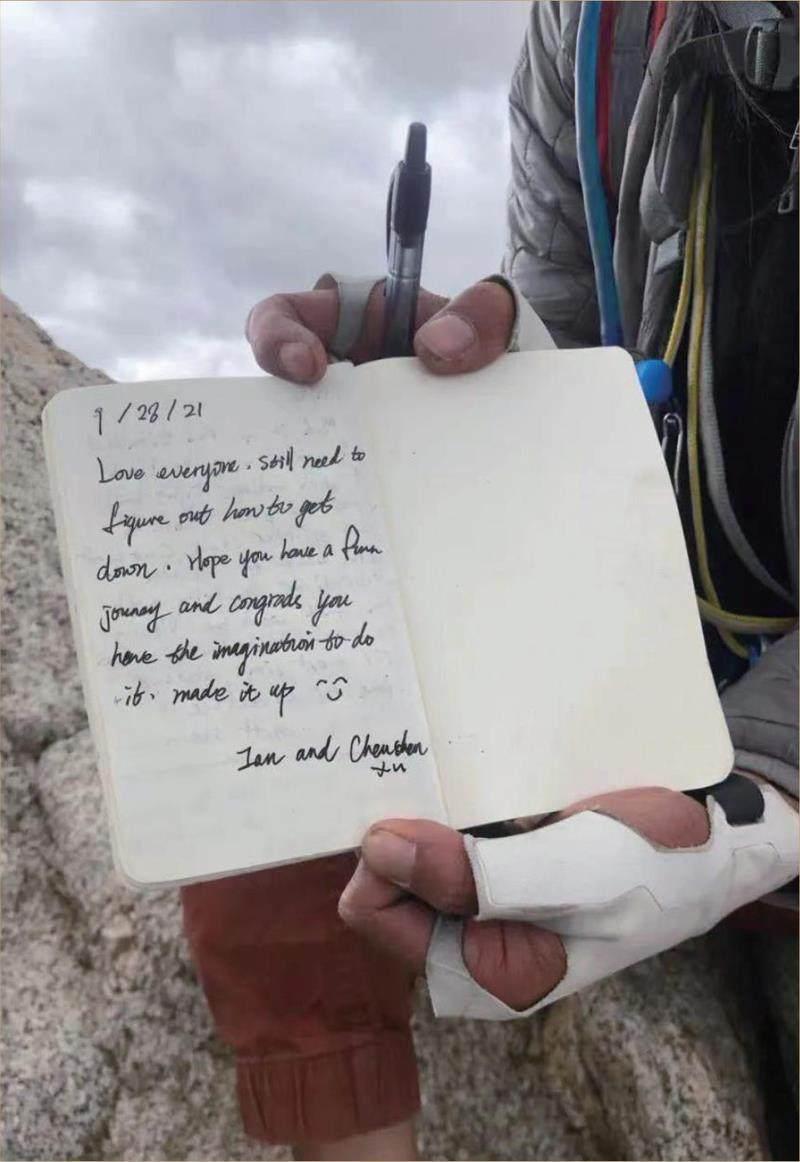 9/28/21
Love everyone. Still need to
figure out how to get
down. Hope you have a funn
jouney and congrads you
have the imagination to do
it. made it up ^‿^
Ian and